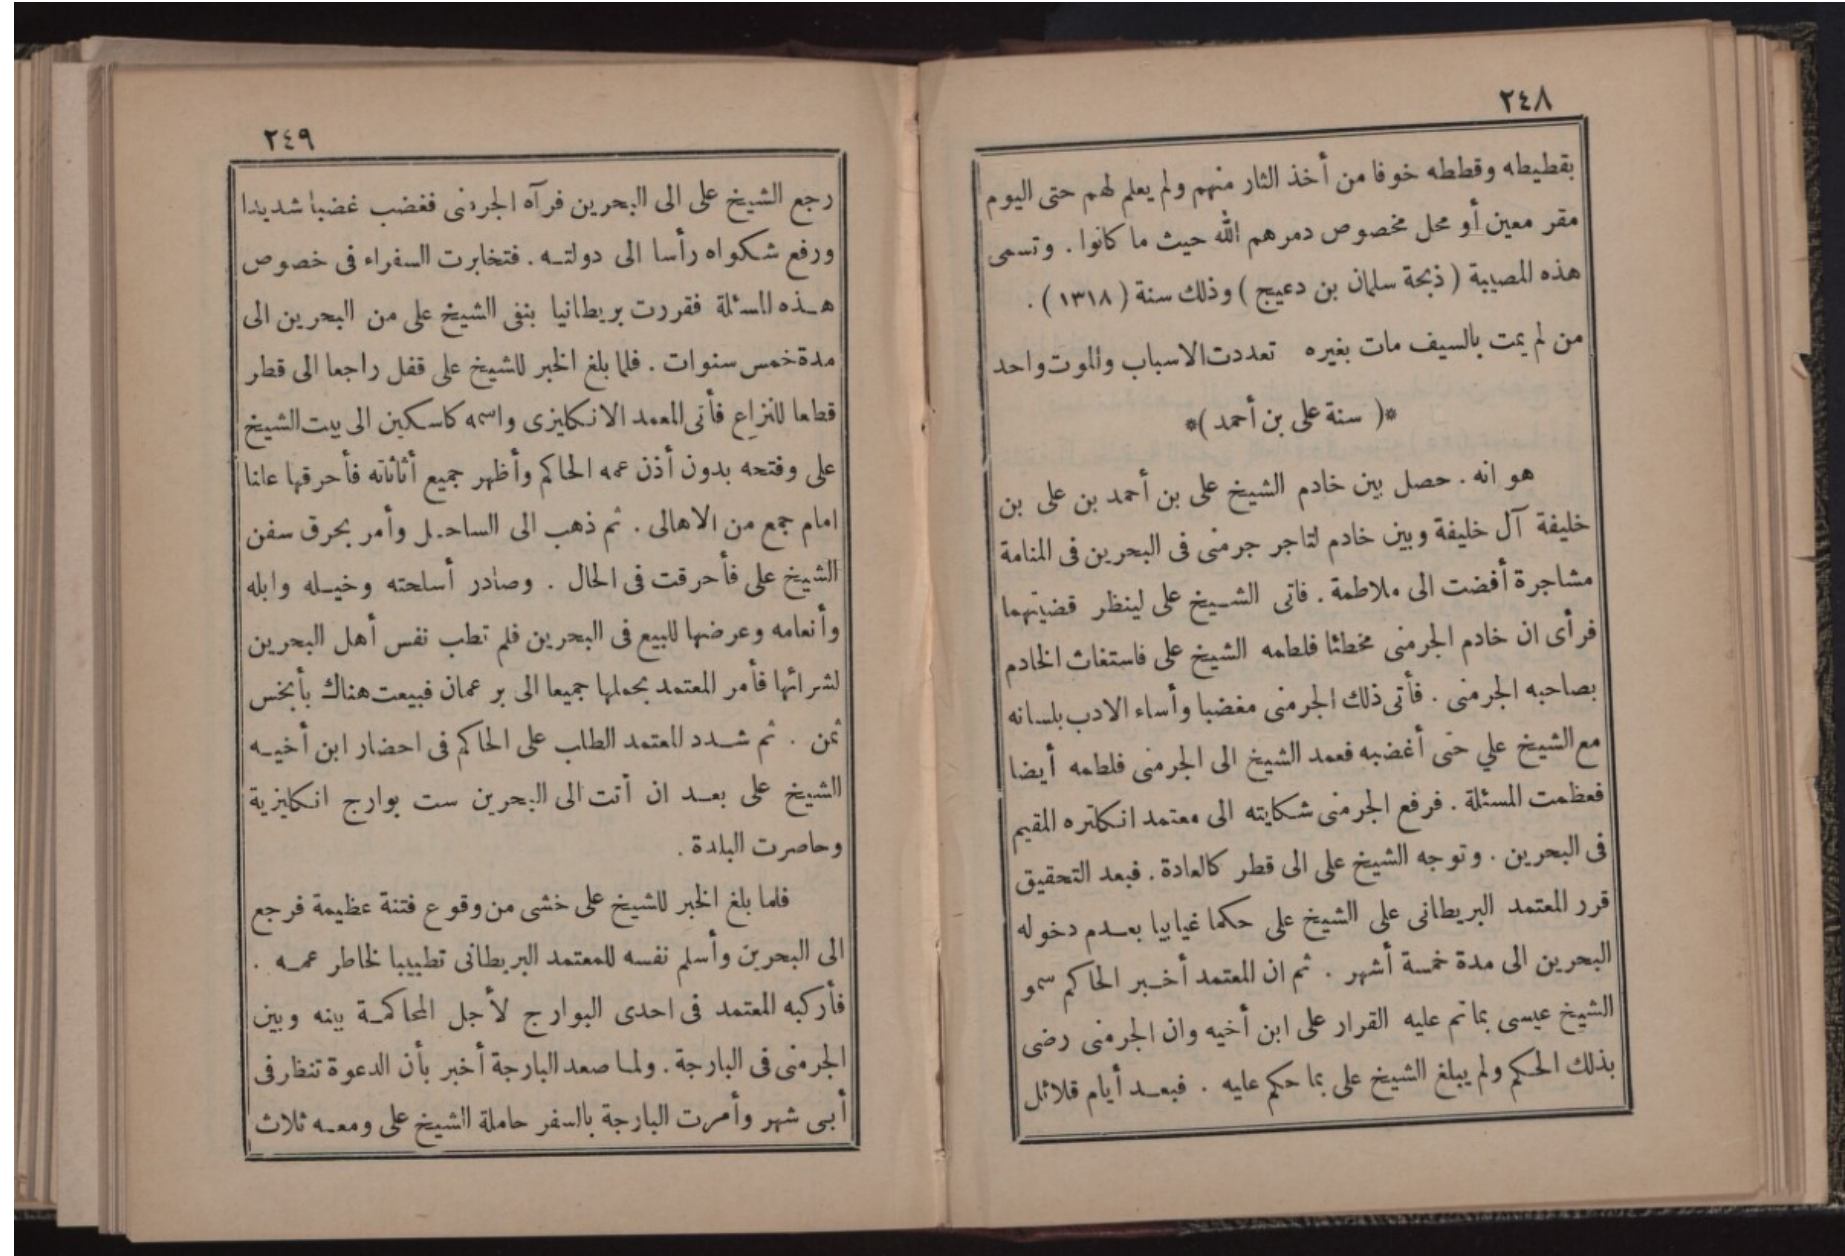 ٢٤٨
بقطيطه وقططه خوفا من أخذ الثار منهم ولم يعلم لهم حتى اليوم
مقر معين أو محل مخصوص دمرهم الله حيث ما كانوا . وتسمى
هذه المصيبة ( ذبحة سلمان بن دعيج ) وذلك سنة ( ١٣١٨ ) .
من لم يمت بالسيف مات بغيره تعددت الاسباب والموت واحد
*( سنة على بن أحمد )*
هو انه . حصل بين خادم الشيخ على بن أحمد بن على بن
خليفة آل خليفة وبين خادم لتاجر جرمنى فى البحرين فى المنامة
مشاجرة أفضت الى ملاطمة . فاتى الشيخ على لينظر قضيتهما
فرأى ان خادم الجرمنى مخطئا فلطمه الشيخ على فاستغاث الخادم
بصاحبه الجرمنى . فأتى ذلك الجرمنى مغضبا وأساء الادب بلسانه
مع الشيخ علي حتى أغضبه فعمد الشيخ الى الجرمنى فلطمه أيضا
فعظمت المسئلة . فرفع الجرمنى شكايته الى معتمد انكلتره المقيم
فى البحرين . وتوجه الشيخ على الى قطر كالعادة . فبعد التحقيق
قرر المعتمد البريطانى على الشيخ على حكما غيابيا بعدم دخوله
البحرين الى مدة خمسة أشهر . ثم ان المعتمد أخبر الحاكم سمو
الشيخ عيسى بما تم عليه القرار على ابن أخيه وان الجرمنى رضى
بذلك الحكم ولم يبلغ الشيخ على بما حكم عليه . فبعد أيام قلائل
٢٤٩
رجع الشيخ على الى البحرين فرآه الجرمنى فغضب غضبا شديدا
ورفع شكواه رأسا الى دولته . فتخابرت السفراء فى خصوص
هذه المسئلة فقررت بريطانيا بنفى الشيخ على من البحرين الى
مدة خمس سنوات . فلما بلغ الخبر للشيخ على قفل راجعا الى قطر
قطعا للنزاع فأتى المعمد الانكليزى واسمه كاسكين الى بيت الشيخ
على وفتحه بدون أذن عمه الحاكم وأظهر جميع أثاثاته فأحرقها علنا
امام جمع من الاهالى . ثم ذهب الى الساحل وأمر بحرق سفن
الشيخ على فأحرقت فى الحال . وصادر أسلحته وخيله وابله
وأنعامه وعرضها للبيع فى البحرين فلم تطب نفس أهل البحرين
لشرائها فأمر المعتمد بحملها جميعا الى بر عمان فبيعت هناك بأبخس
ثمن . ثم شدد المعتمد الطلب على الحاكم فى احضار ابن أخيه
الشيخ على بعد ان أتت الى البحرين ست بوارج انكليزية
وحاصرت البلدة .
فلما بلغ الخبر للشيخ على خشى من وقوع فتنة عظيمة فرجع
الى البحرين وأسلم نفسه للمعتمد البريطانى تطييبا لخاطر عمه .
فأركبه المعتمد فى احدى البوارج لأجل المحاكمة بينه وبين
الجرمنى فى البارجة . ولما صعد البارجة أخبر بأن الدعوة تنظار فى
أبى شهر وأمرت البارجة بالسفر حاملة الشيخ على ومعه ثلاث